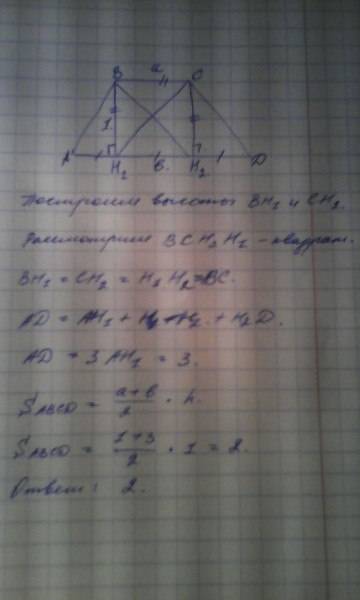 B a C
1
A H₁ B. H₂ D
Построим высоты BH₁ и CH₂.
Рассмотрим BCH₂H₁ - квадрат.
BH₁ = CH₂ = H₁H₂ = BC.
AD = AH₁ + H₁H₂ + H₂D.
AD = 3AH₁ = 3.
S_ABCD = (a+b)/2 · h.
S_ABCD = (1+3)/2 · 1 = 2.
Ответ: 2.